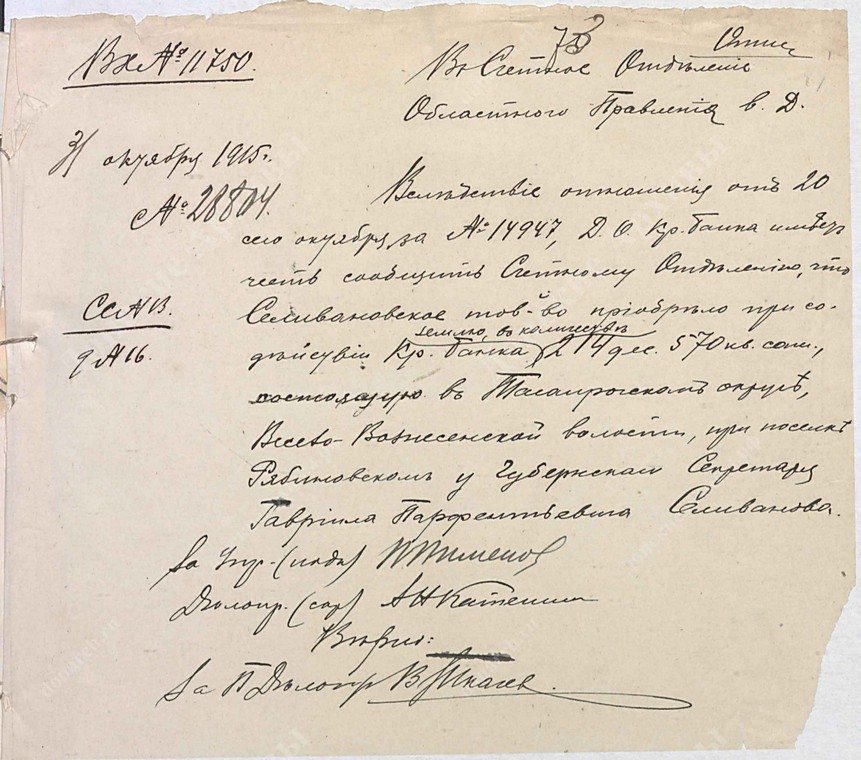 Вх № 11750.
73
Опись
Въ Счетное Отдѣленіе
Областного Правленія в. Д.
31 октября 1915 г.
№ 28804.
Вслѣдствіе отношенія отъ 20
сего октября за № 14947, Д. О. Кр. банка имѣетъ
честь сообщить Счетному Отдѣленію, что
Селивановское тов-во пріобрѣло при со-
землю, въ количествѣ
дѣйствіи Кр. банка 214 дес. 570 кв. саж.,
состоящую въ Таганрогскомъ округѣ,
Всево-Вознесенской волости, при поселкѣ
Рябиновскомъ у Губернскаго Секретаря
Гавріила Парфентьевича Селиванова.
За Упр. (подп) П Пименов
Дѣлопр. (скр) А Н Катенин
Вѣрно:
За П Дѣлопр В